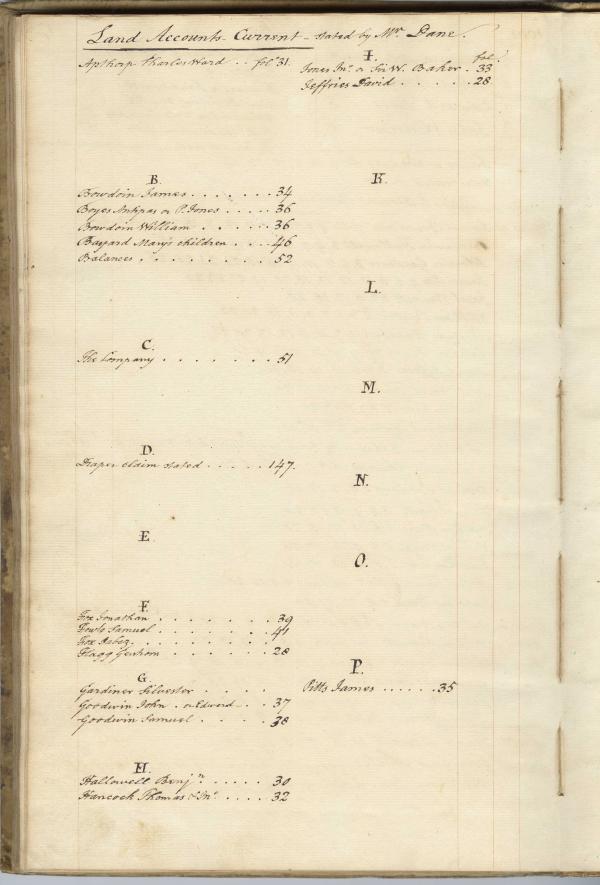 Land Accounts Current - stated by Mr. Dane.
Apthorp Charles Ward . . fol. 31.
B.
Bowdoin James . . . . . . . 34
Boyes Antipas or P. Jones . . . . . 36
Bowdoin William . . . . 36
Bayard Mary's children . . . . 46
Balances . . . . . . . . 52
C.
The Company . . . . . . . 51
D.
Draper Claim stated . . . . . 147.
E
F.
Fox Jonathan . . . . . . . 39
Fowle Samuel . . . . . . . 41
Fox Jabez . . . . . . . .
Flagg Gershom . . . . . . 28
G.
Gardiner Silvester . . . .
Goodwin John . or Edward . . . 37
Goodwin Samuel . . . . . 38
H.
Hallowell Benjn. . . . . . 30
Hancock Thomas & Jno. . . . . 32
I. fol.
Jones Jno. or Sir W. Baker . 33
Jeffries David . . . . . . 28
K.
L.
M.
N.
O.
P.
Pitts James . . . . . . 35